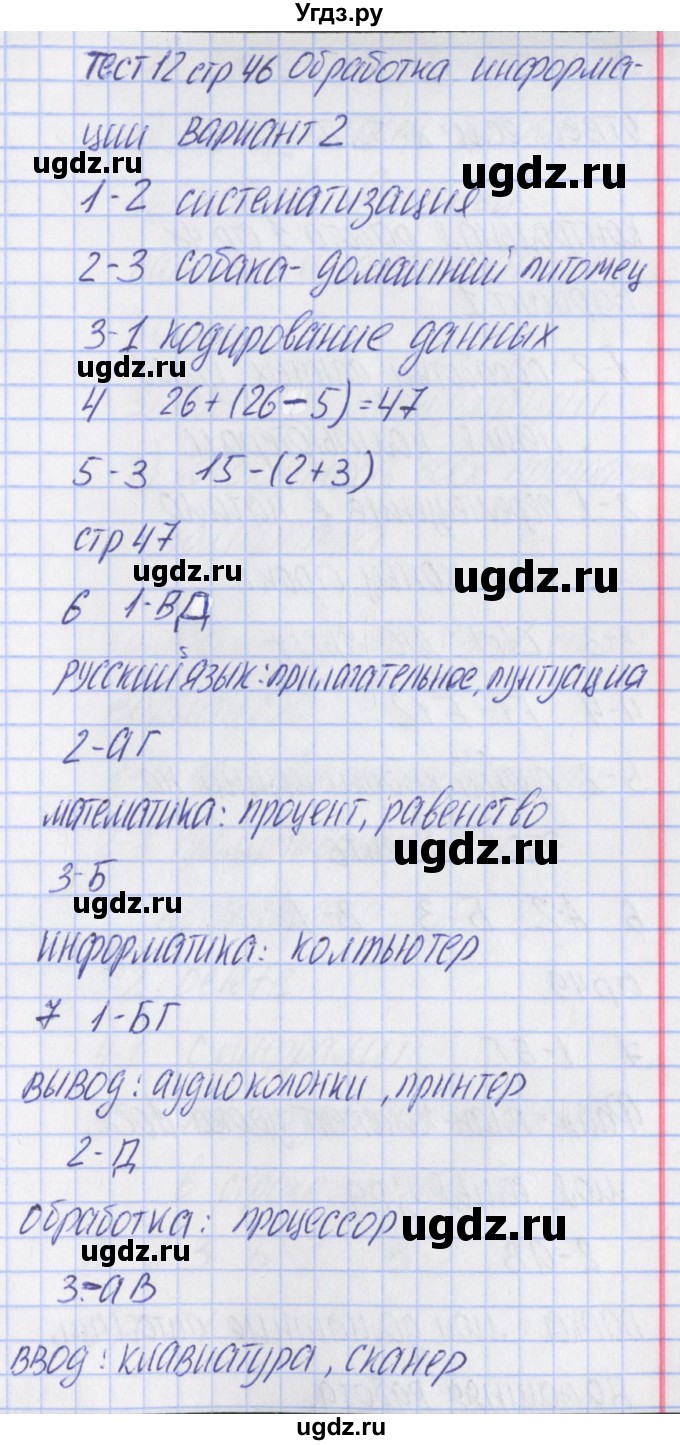 Угдз.ру
Тест 12 стр 46 Обработка информа-
ции вариант 2
ugdz.ru
ugdz.ru
1-2 систематизация
2-3 собака- домашний питомец
3-1 кодирование данных
ugdz.ru
4 26+(26-5)=47
5-3 15-(2+3)
стр 47
ugdz.ru
ugdz.ru
6 1-ВД
русский язык: прилагательное, пунтуация
2-АГ
математика: процент, равенство
ugdz.ru
3-Б
ugdz.ru
информатика: колтьютер
7 1-БГ
вывод: аудиоколонки, принтер
2-Д
обработка: процессор
ugdz.ru
ugdz.ru
3-аВ
ввод: клавиатура, сканер
ugdz.ru